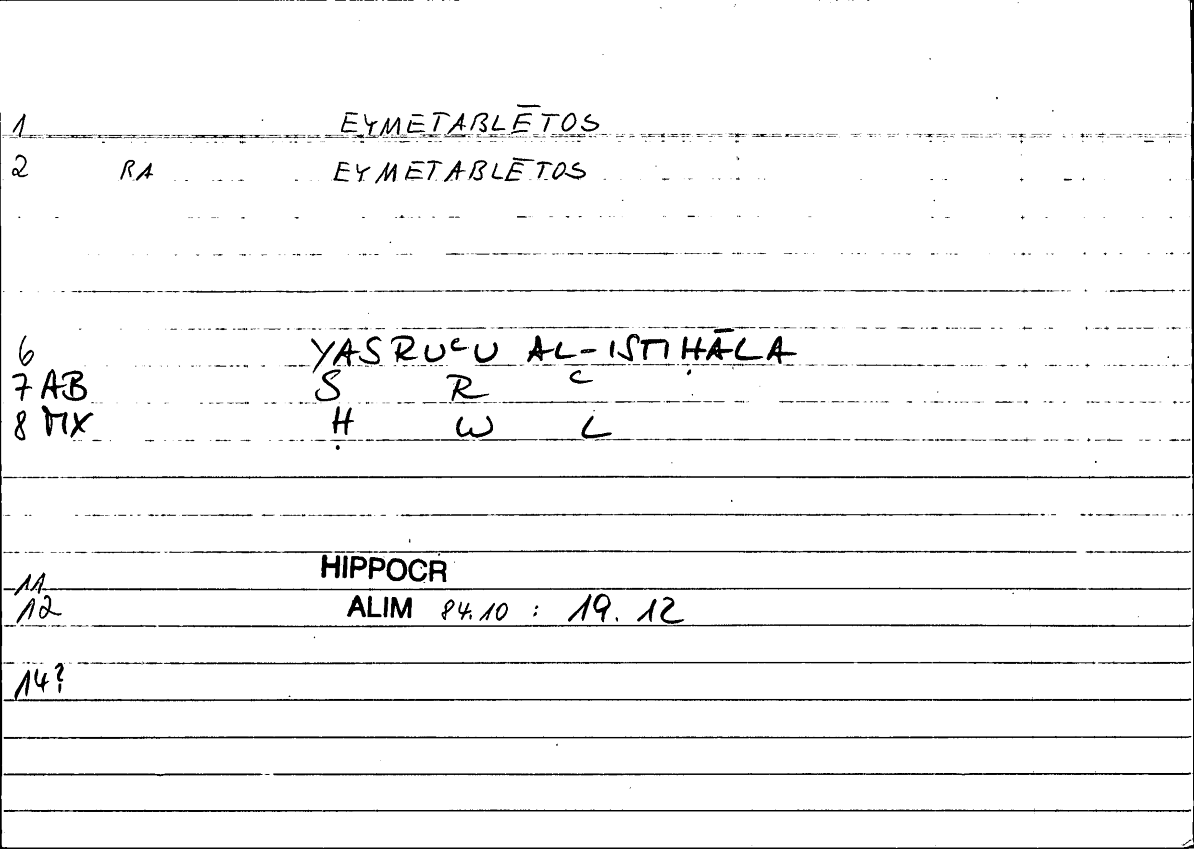 1 EYMETABLĒTOS
2 RA EYMETABLĒTOS
6 YASRUᶜU AL-ISTIḤĀLA
7 AB S R ᶜ
8 MX Ḥ W L
11 HIPPOCR
12 ALIM 84.10 : 19.12
14?